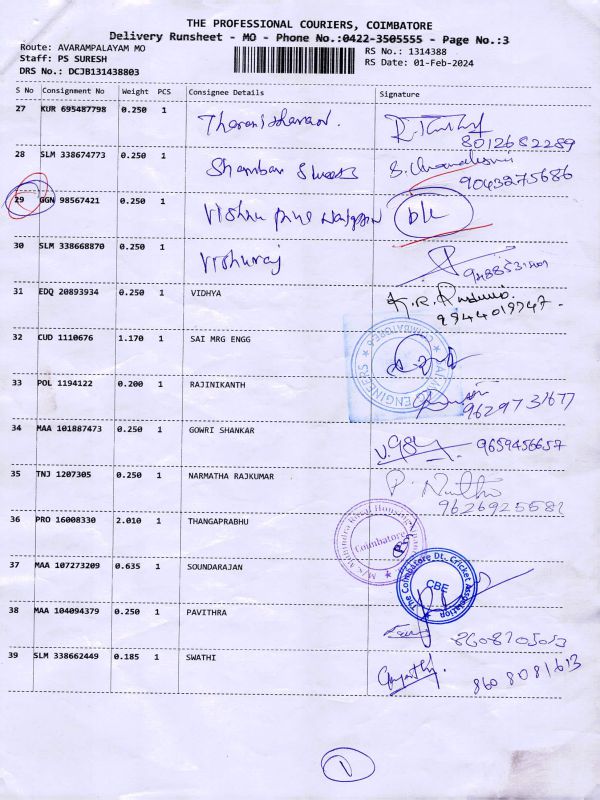 THE PROFESSIONAL COURIERS, COIMBATORE
Delivery Runsheet - MO - Phone No.:0422-3505555 - Page No.:3
Route: AVARAMPALAYAM MO RS No.: 1314388
Staff: PS SURESH RS Date: 01-Feb-2024
DRS No.: DCJB131438803
S No Consignment No Weight PCS Consignee Details Signature
27 KUR 695487798 0.250 1
8012682289
28 SLM 338674773 0.250 1
9043275686
29 GGN 98567421 0.250 1 Vishnu
30 SLM 338668870 0.250 1 Vishuraj
31 EDQ 20893934 0.250 1 VIDHYA K.R.
9944019747.
32 CUD 1110676 1.170 1 SAI MRG ENGG
33 POL 1194122 0.200 1 RAJINIKANTH
9629731677
34 MAA 101887473 0.250 1 GOWRI SHANKAR 9659456657
35 TNJ 1207305 0.250 1 NARMATHA RAJKUMAR
9626925581
36 PRO 16008330 2.010 1 THANGAPRABHU
Coimbatore
37 MAA 107273209 0.635 1 SOUNDARAJAN
The Coimbatore Dt. Cricket Association
CBE
38 MAA 104094379 0.250 1 PAVITHRA
39 SLM 338662449 0.185 1 SWATHI
8608081613
1